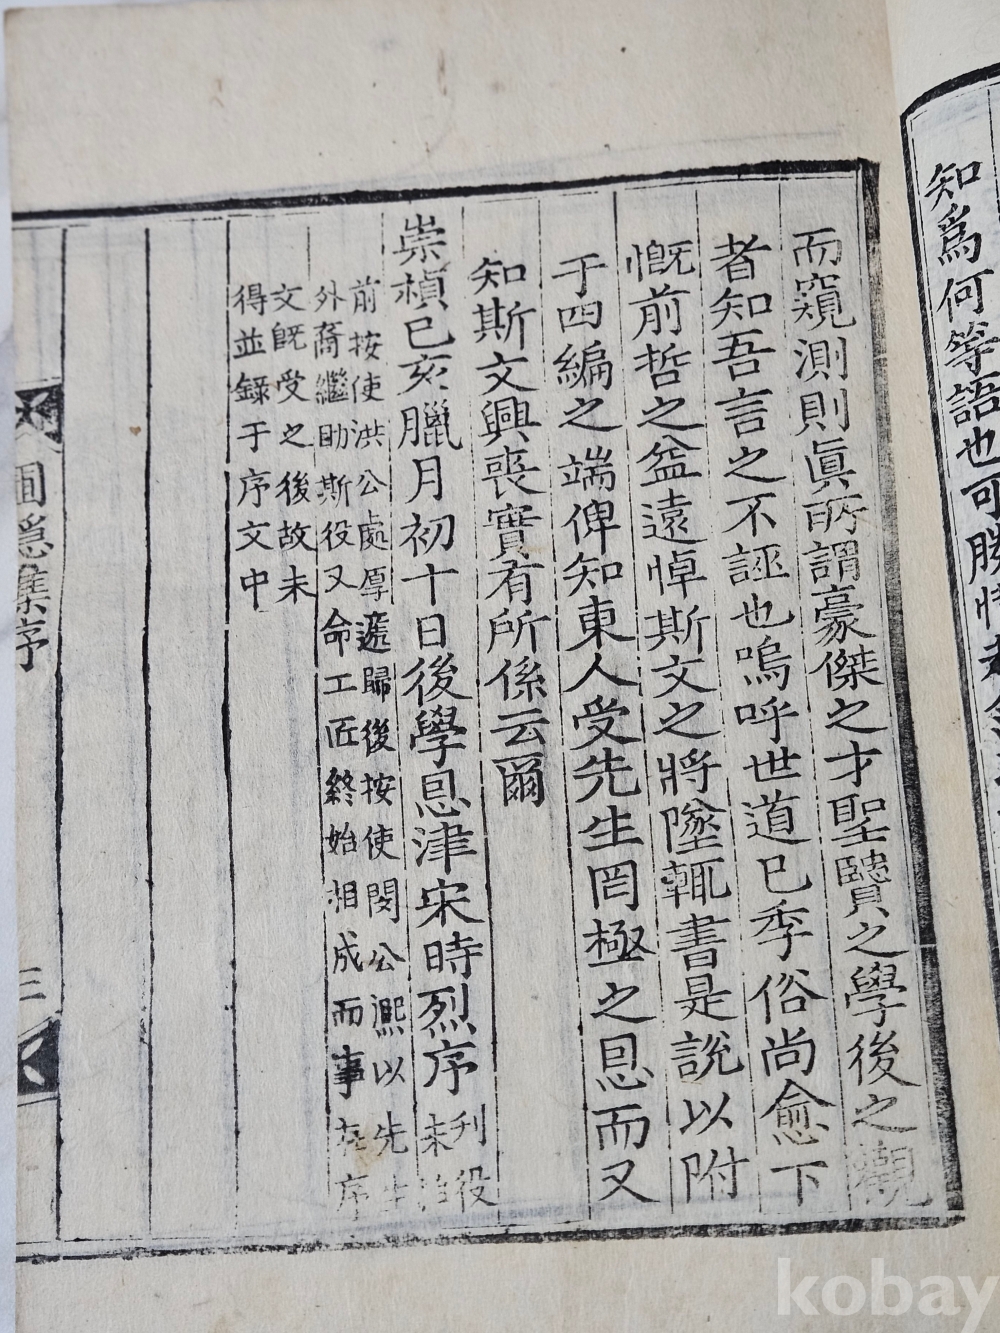 知爲何等語也可勝惜
而窺測則眞所謂豪傑之才聖賢之學後之觀
者知吾言之不誣也嗚呼世道已季俗尚愈下
慨前哲之益遠悼斯文之將墜輒書是說以附
于四編之端俾知東人受先生罔極之恩而又
知斯文興喪實有所係云爾
崇禎己亥臘月初十日後學恩津宋時烈序
刊役
未
前按使洪公處厚遞歸後按使閔公熈以先生
外裔繼助斯役又命工匠終始相成而事在序
文旣受之後故未
得並錄于序文中
圃隱集序
三
kobay